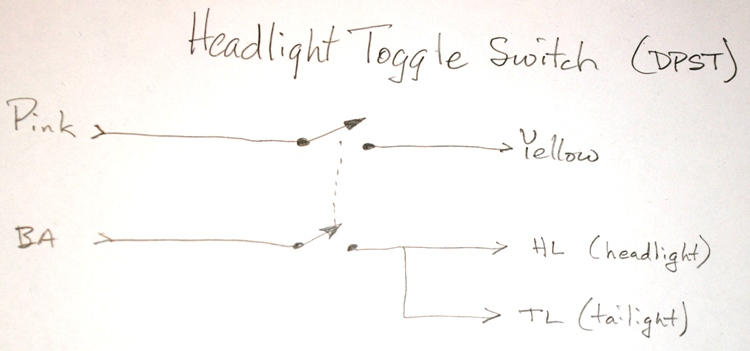 Headlight Toggle Switch (DPST)
Pink
Yellow
BA
HL (headlight)
TL (tailight)